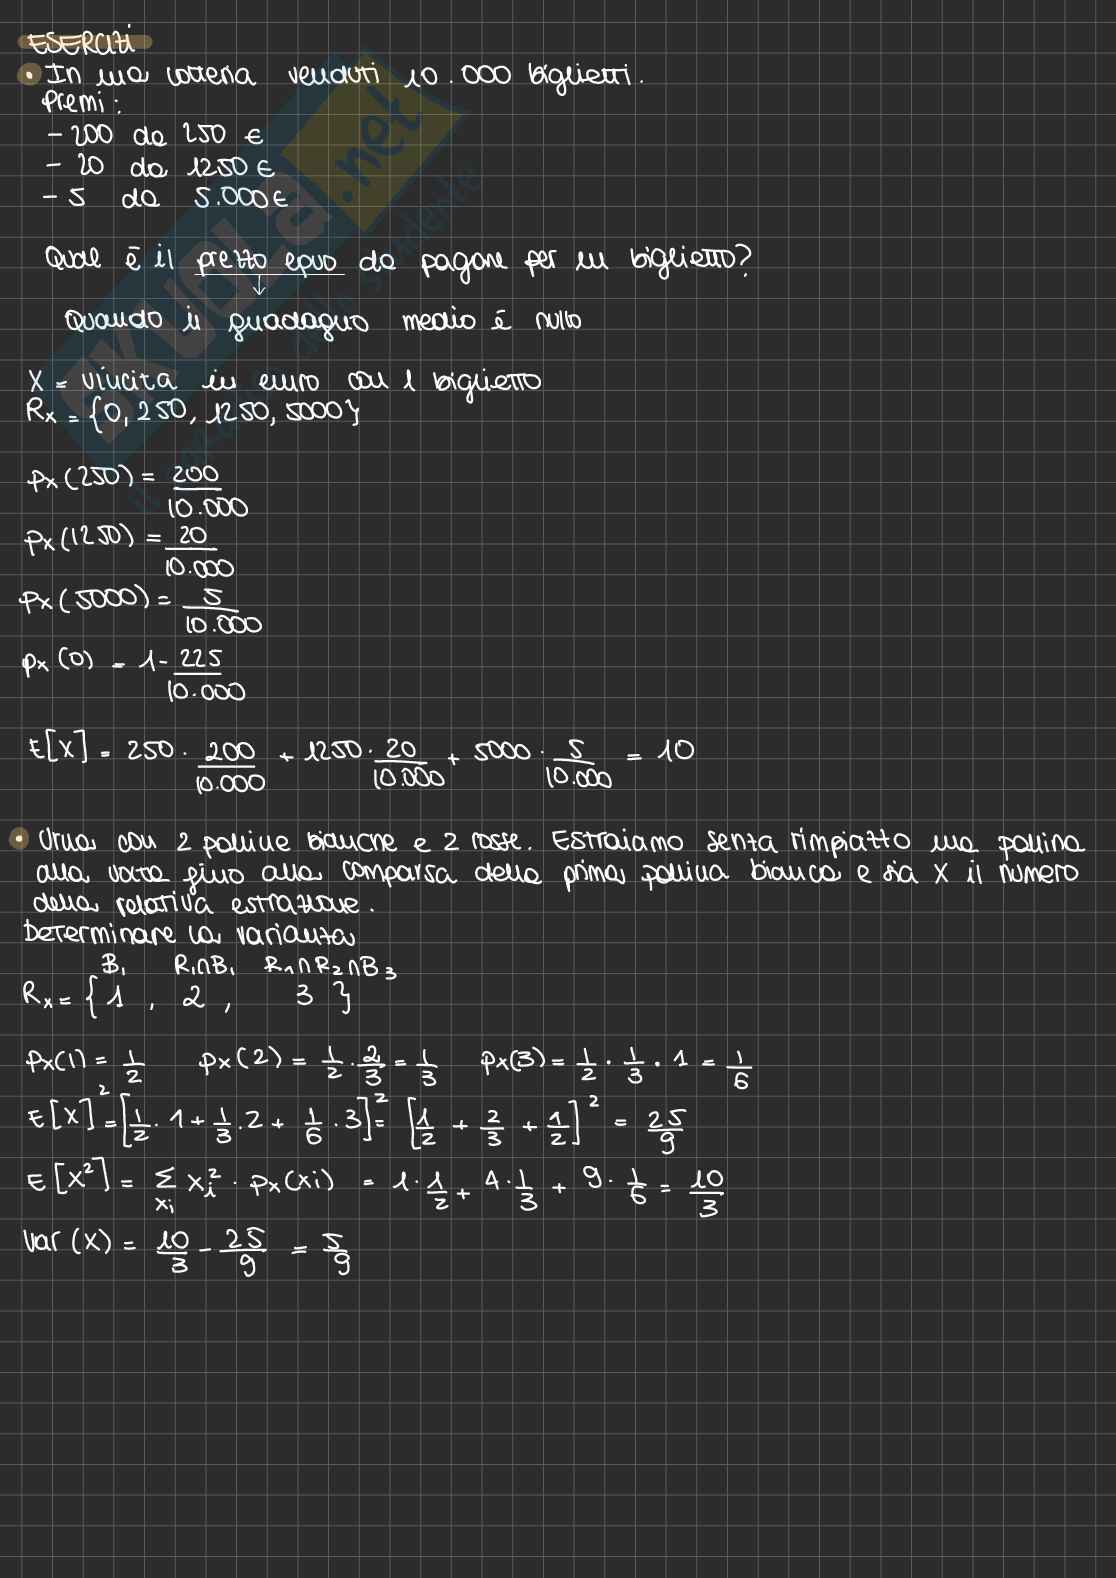 ESERCIZI
• In una lotteria venduti 10.000 biglietti.
Premi:
- 200 da 250 €
- 20 da 1250 €
- 5 da 5.000 €
Qual è il prezzo equo da pagare per un biglietto?
↓
Quando il guadagno medio è nullo
X = vincita in euro con 1 biglietto
Rx = {0, 250, 1250, 5000}
px(250) = 200/10.000
px(1250) = 20/10.000
px(5000) = 5/10.000
px(0) = 1 - 225/10.000
E[X] = 250 · 200/10.000 + 1250 · 20/10.000 + 5000 · 5/10.000 = 10
• Urna con 2 palline bianche e 2 rosse. Estraiamo senza rimpiazzo una pallina
alla volta fino alla comparsa della prima pallina bianca e sia X il numero
della relativa estrazione.
Determinare la varianza
B₁ R₁∩B₁ R₁∩R₂∩B₃
Rx = {1, 2, 3}
px(1) = 1/2 px(2) = 1/2 · 2/3 = 1/3 px(3) = 1/2 · 1/3 · 1 = 1/6
E[X]² = [1/2 · 1 + 1/3 · 2 + 1/6 · 3]² = [1/2 + 2/3 + 1/2]² = 25/9
E[X²] = Σxi xi² · px(xi) = 1 · 1/2 + 4 · 1/3 + 9 · 1/6 = 10/3
Var(X) = 10/3 - 25/9 = 5/9
SKUOLA.net